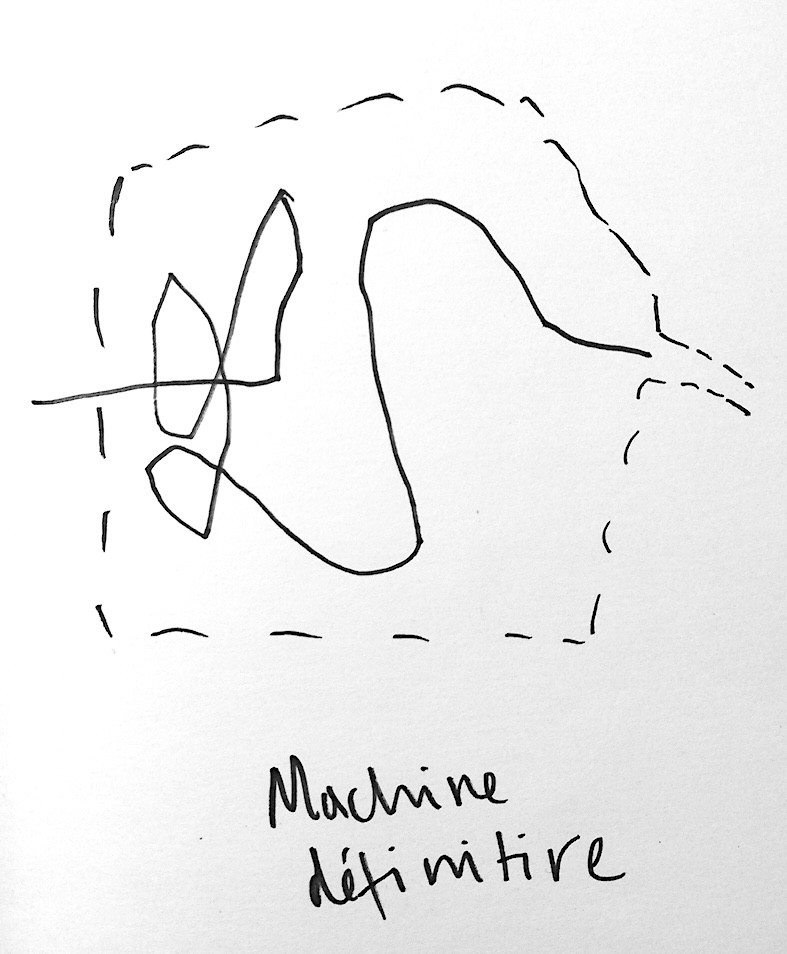 Machine
définitive